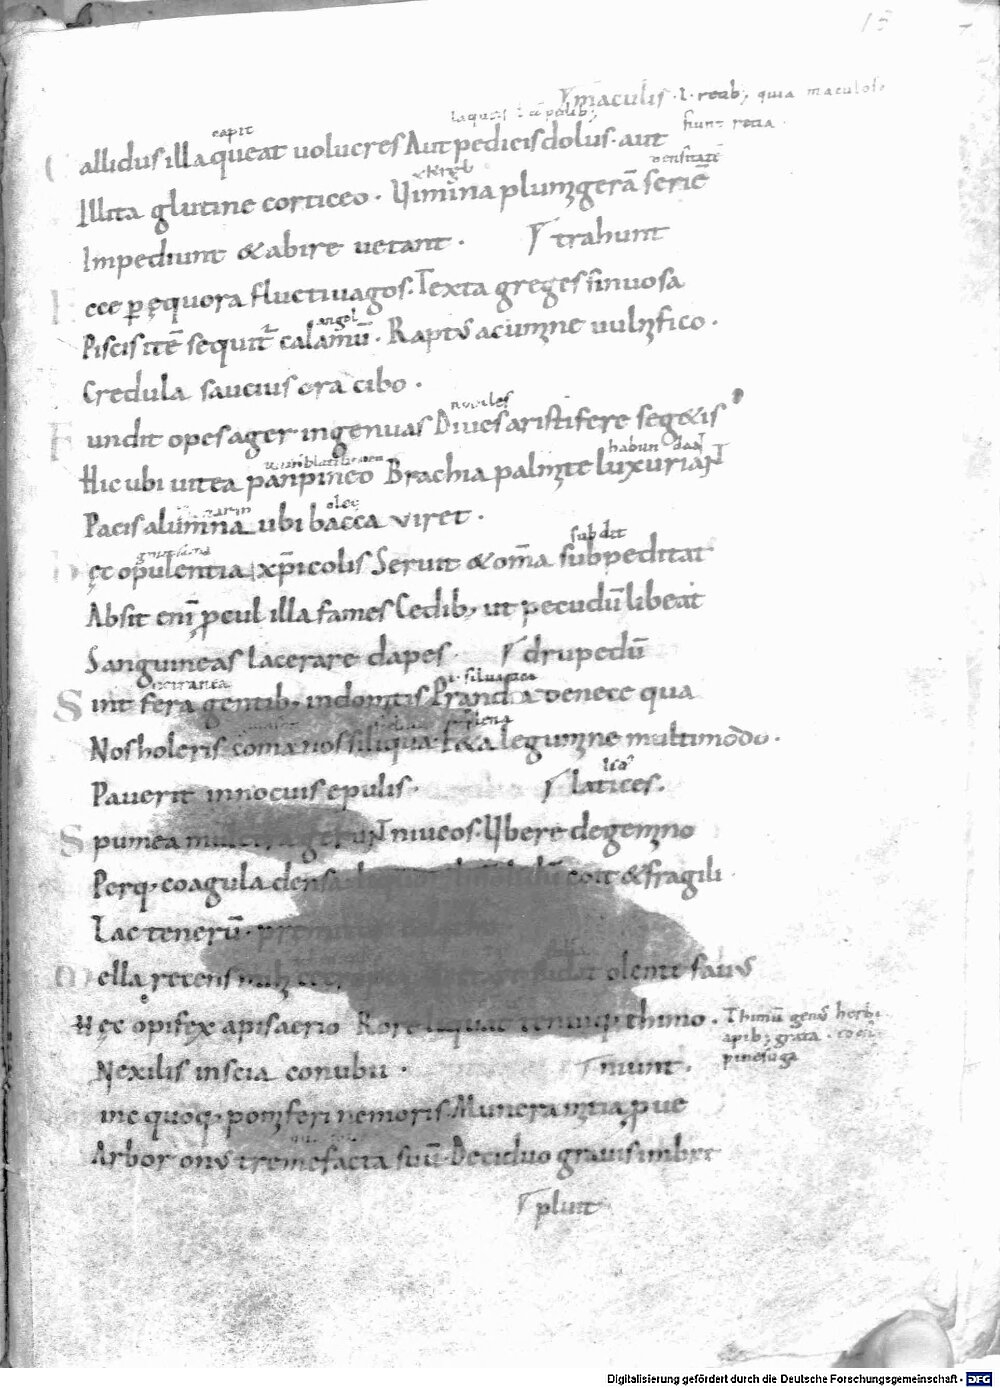 15
⸍maculis · i · retib; quia maculose
capit
fiunt retia ·
Callidus illaqueat uolucres Aut pedicis dolus · aut
densitatē
Illita glutine corticeo · Uimina plumigerā seriē
Impediunt & abire uetant · ⸍trahunt
Ecce p̱ ęquora fluctiuagos · Texta greges sinuosa
angel
Piscis itē sequit̄ calamū · Raptꝰ acumine uulnifico ·
Credula saucius ora cibo ·
Fundit opes ager ingenuas Diues aristifere segetis
habundant
Hic ubi uitea pampineo Brachia palmite luxuriant
oleę
Pacis alumna ubi bacca viret ·
subdit
Hęc opulentia xp̄icolis Seruit & om̄a subpeditat
Absit eni᷒ ꝓcul illa fames Cedib; ut pecudū libeat
Sanguineas lacerare dapes · ⸍drupedū
i · siluatica
Sint fera gentib; indomitis Prandia de nece qua
plena
Nos holeris coma nos siliqua · F&a legumine multimodo ·
Pauerit innocuis epulis · ⸍latices ·
Spumea mulctra gerunt niueos · Ubere de gemino
Perq; coagula densa liquor In solidū coit & fragili
Lac tenerū · premitur calatho
Mella recens mihi olenti fauꝰ
Hęc opifex apis aerio Rore liquat tenuiq; thimo · Thimū genꝰ herbę
apib; grata ·
Nexilis inscia conubii · ⸍niunt ·
inc quoq; pomiferi nemoris · Munera mitia ꝓue
Arbor onꝰ tremefacta suū · Deciduo grauis imbre
⸍pluit
Digitalisierung gefördert durch die Deutsche Forschungsgemeinschaft - DFG